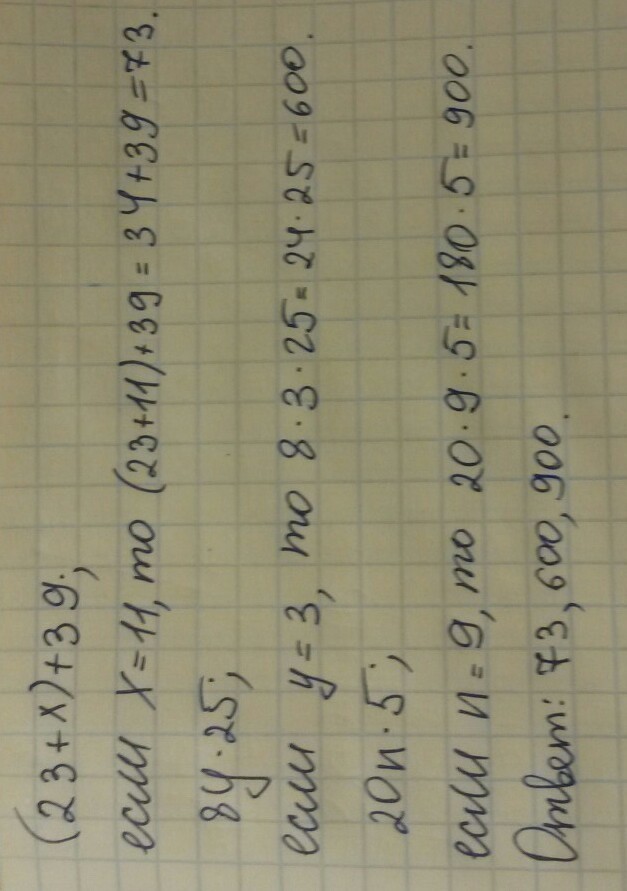 (23+x)+39;
если x=11, то (23+11)+39=34+39=73.
8y·25;
если y=3, то 8·3·25=24·25=600.
20n·5;
если n=9, то 20·9·5=180·5=900.
Ответ: 73, 600, 900.